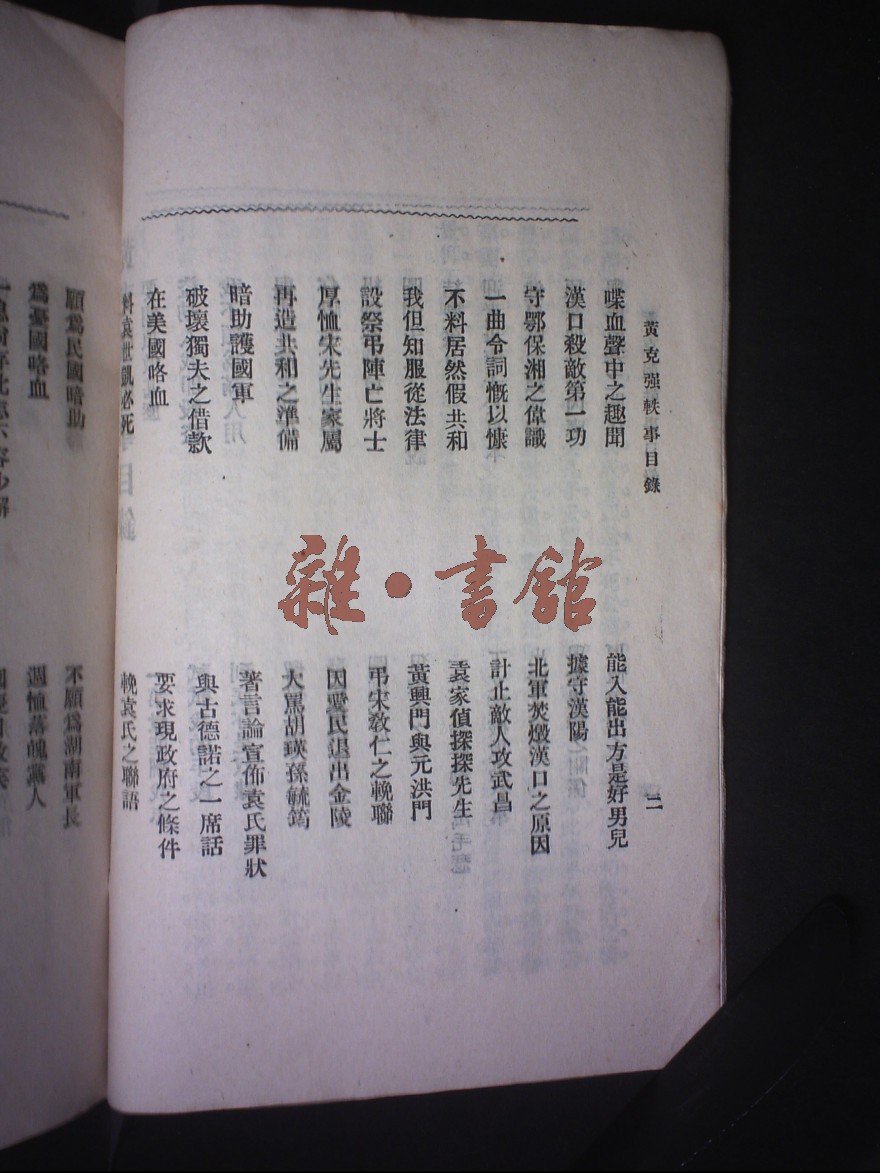 黃克强軼事目錄
二
喋血聲中之趣聞
能入能出方是好男兒
漢口殺敵第一功
據守漢陽
守鄂保湘之偉識
北軍焚燬漢口之原因
一曲令詞慨以慷
計止敵人攻武昌
不料居然假共和
袁家偵探探先生
我但知服從法律
黃興門與元洪門
設祭弔陣亡將士
弔宋敎仁之輓聯
厚恤宋先生家屬
因愛民退出金陵
再造共和之準備
大罵胡瑛孫毓筠
暗助護國軍
著言論宣佈袁氏罪狀
破壞獨夫之借款
與古德諾之一席話
在美國咯血
要求現政府之條件
料袁世凱必死
輓袁氏之聯語
願爲民國暗助
不願爲湖南軍長
爲憂國咯血
週恤落魄黨人
雜·書館